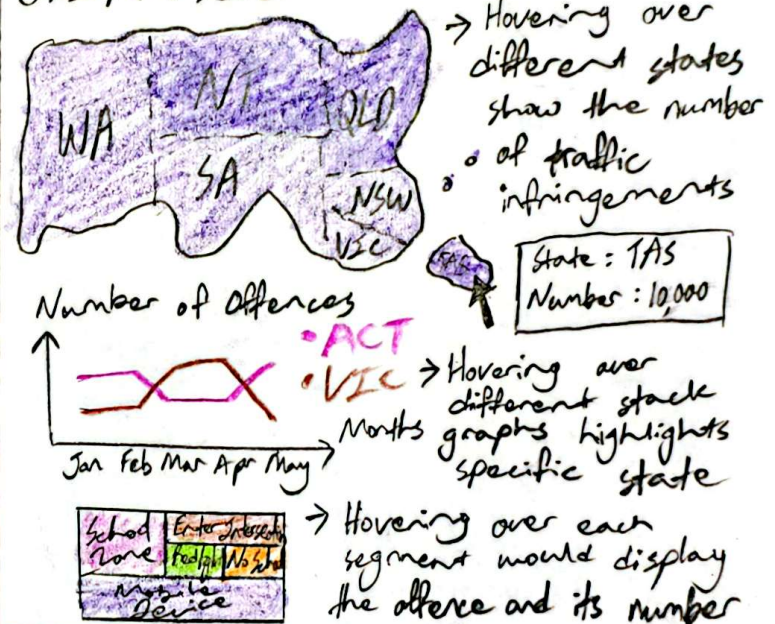 WA
NT
QLD
SA
NSW
VIC
TAS
→ Hovering over
different states
show the number
of traffic
infringements
State : TAS
Number : 10,000
Number of Offences
• ACT
• VIC
Months
Jan Feb Mar Apr May
→ Hovering over
different stack
graphs highlights
specific state
School
Zone
Enter Intersection
Redlight
Mobile
Device
→ Hovering over each
segment would display
the offence and its number